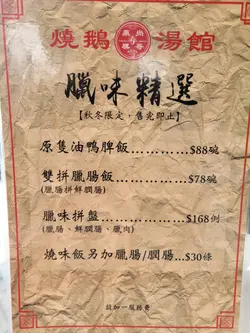 燒鵝湯館
臘味精選
【秋冬限定，售完即止】
原隻油鴨髀飯.............$88碗
雙拼臘腸飯.............$78碗
(臘腸拼鮮膶腸)
臘味拼盤.............$168例
(臘腸、鮮膶腸、臘肉)
燒味飯另加臘腸/膶腸...$30條
設加一服務費